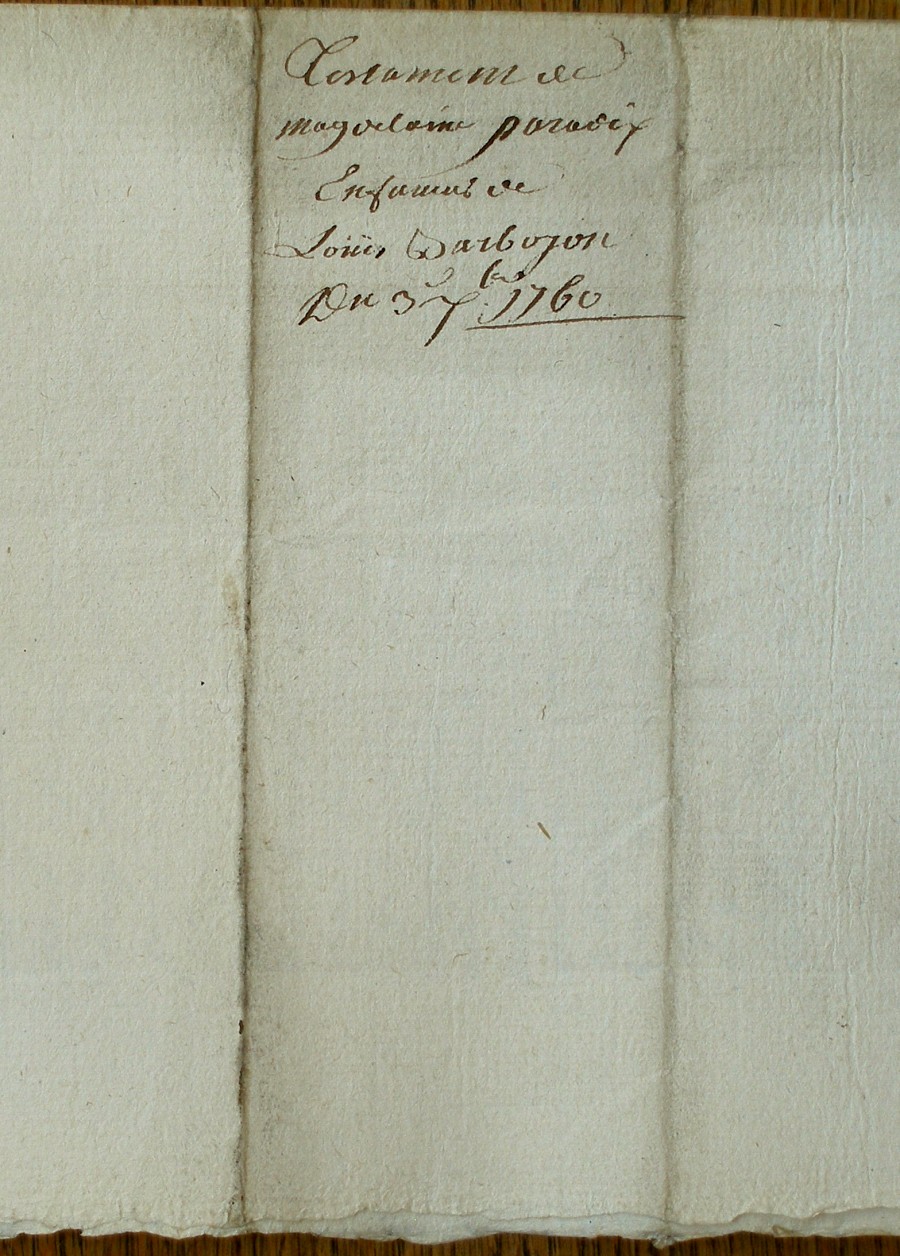 Testament de
magdelaine paradix
Enfames de
Louis Barbojon
Du 3e 7bre 1760